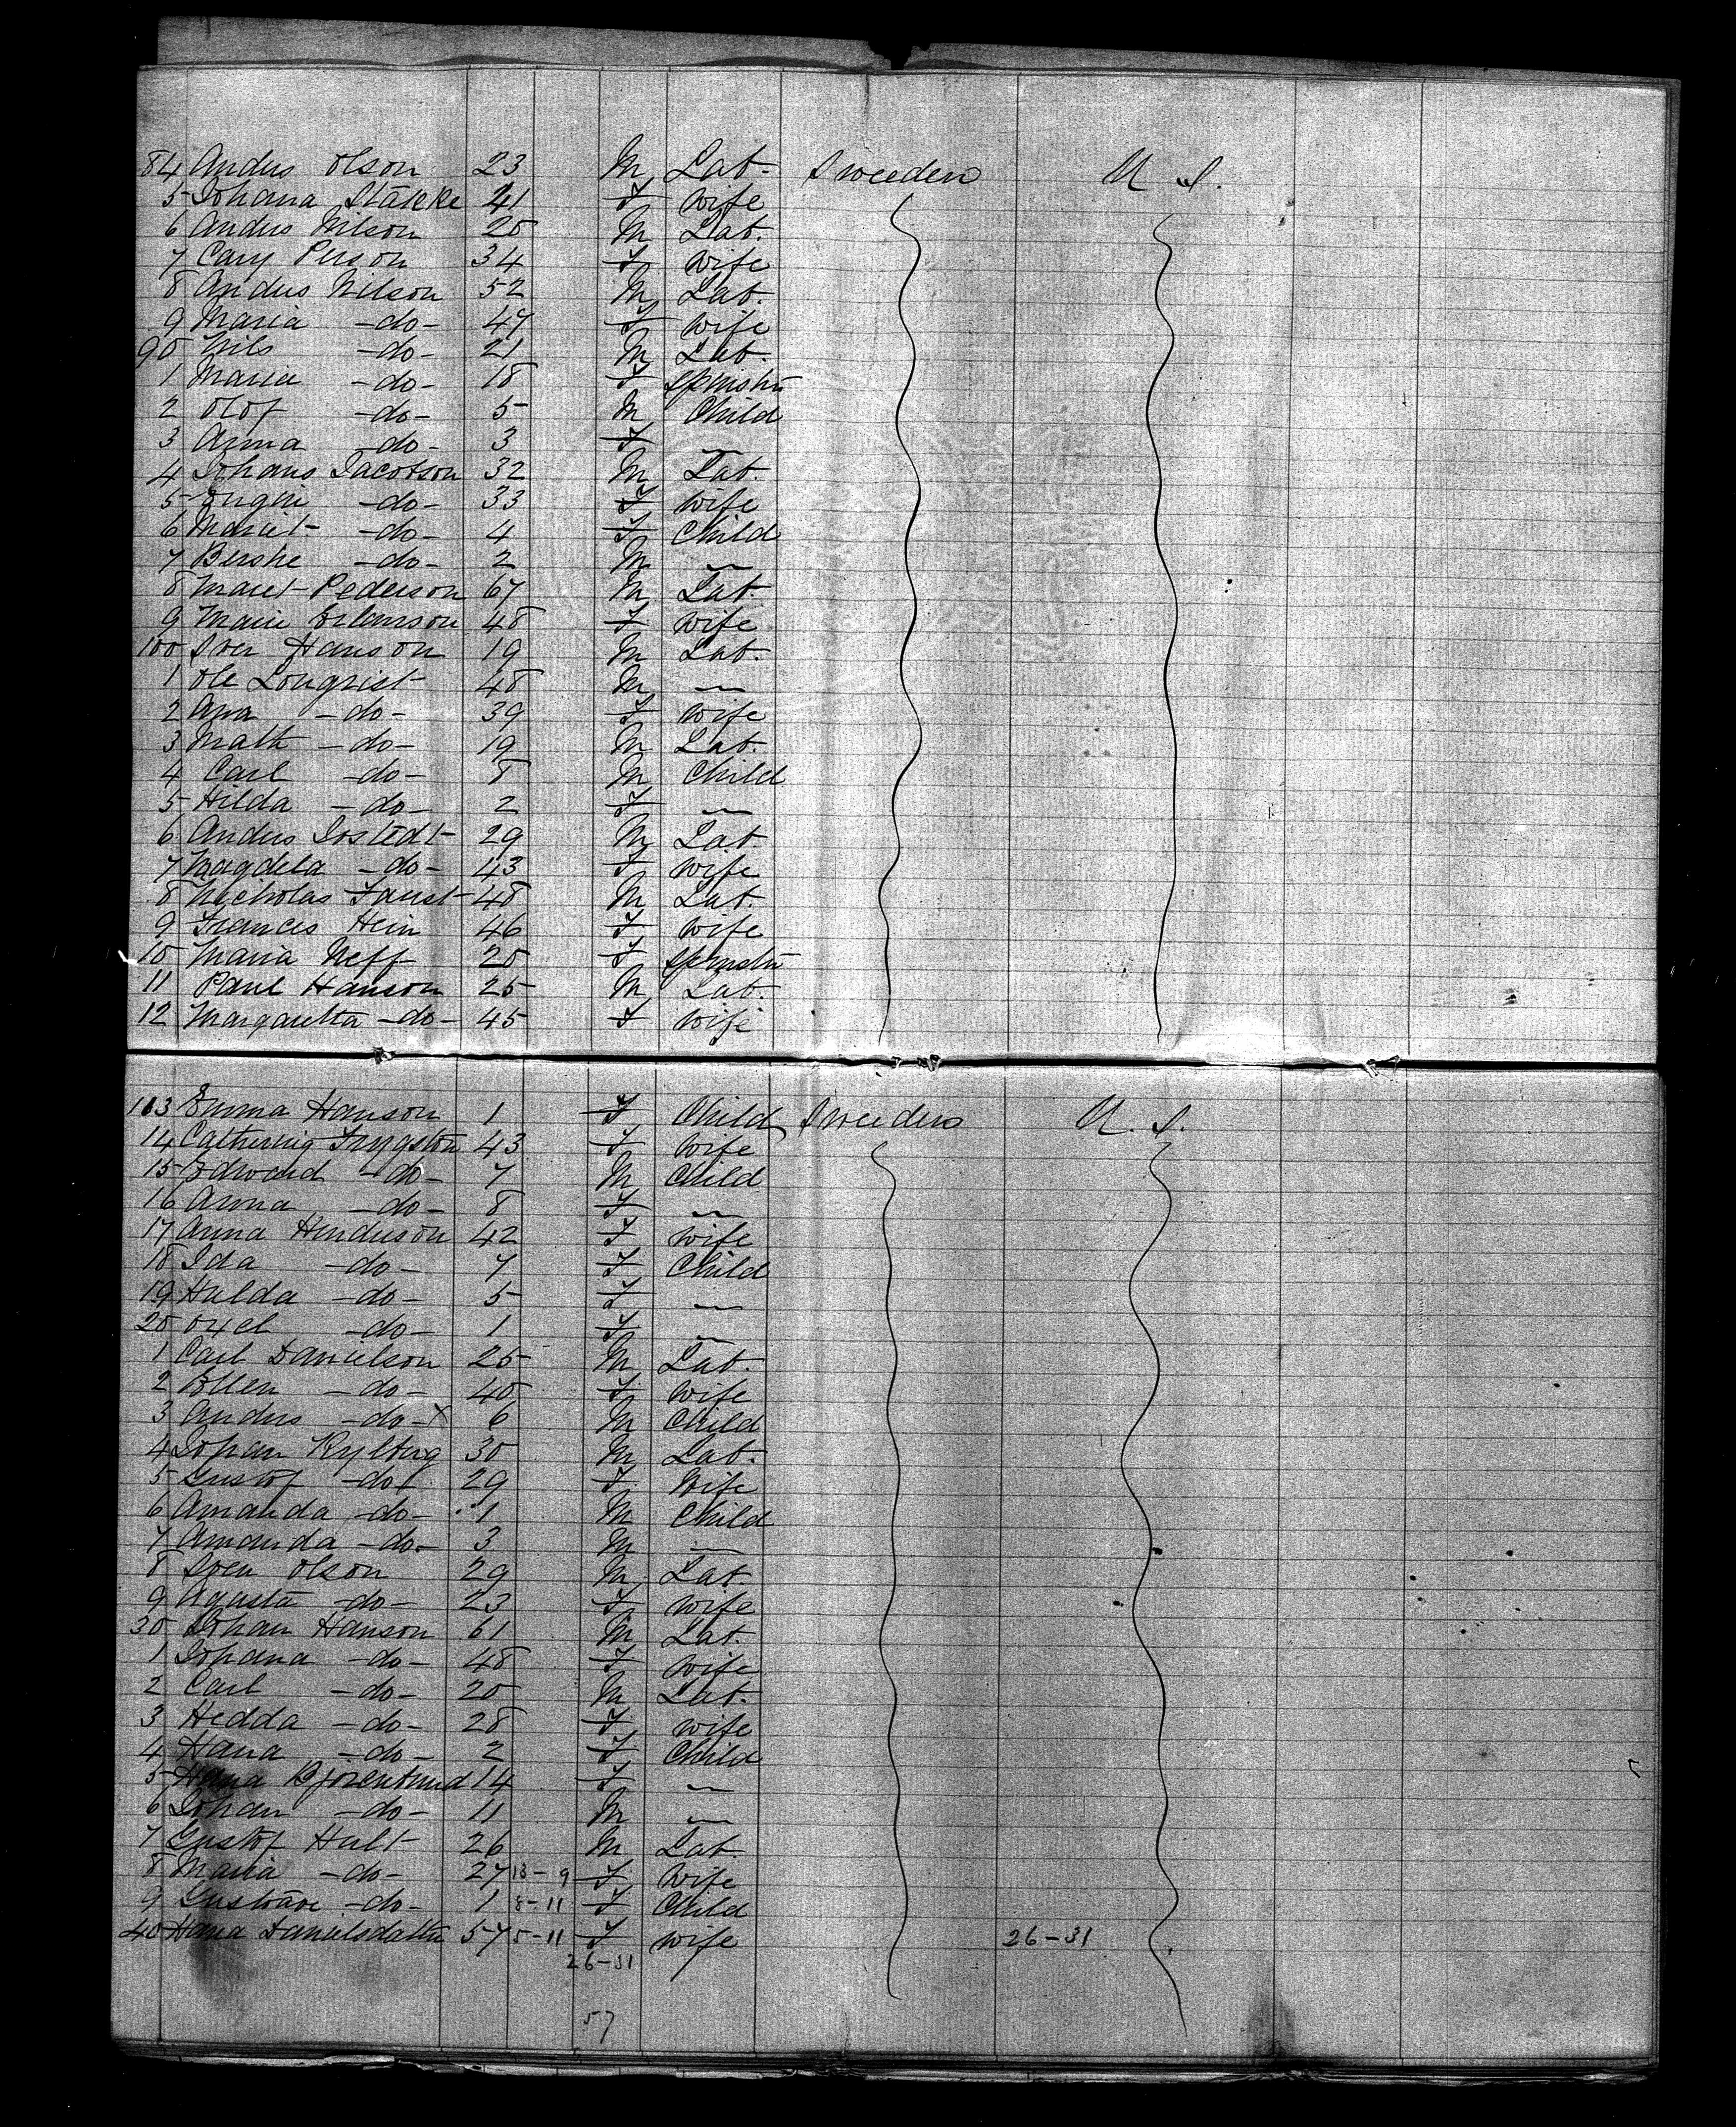 84 Andus Olson 23 M Lab. Sweeden U. S.
5 Johana Stakke 41 F Wife
6 Andus Nilson 20 M Lab.
7 Cary Person 34 F Wife
8 Andus Nilson 52 M Lab.
9 Maria -do- 47 F Wife
90 Nils -do- 21 M Lab.
1 Maria -do- 18 F Spinstr
2 Olof -do- 5 M Child
3 Anna -do- 3 F "
4 Johans Jacobson 32 M Lab.
5 -do- 33 F Wife
6 Mariet -do- 4 F Child
7 -do- 2 M "
8 Pederson 67 M Lab.
9 Marie 48 F Wife
100 Sven Hanson 19 M Lab.
1 Ole Lonqvist 48 M "
2 Ana -do- 39 F Wife
3 Math -do- 19 M Lab.
4 Carl -do- 8 M Child
5 Hilda -do- 2 F "
6 Andus Iostedt 29 M Lab.
7 Magdela -do- 43 F Wife
8 Nicholas Faust 48 M Lab.
9 Frances Hein 46 F Wife
10 Maria Neff 20 F Spinstr
11 Paul Hanson 25 M Lab.
12 Margaretta -do- 45 F Wife
113 Emma Hanson 1 F Child Sweeden U. S.
14 43 F Wife
15 Edward -do- 7 M Child
16 Anna -do- 8 F "
17 Anna Henderson 42 F Wife
18 Ida -do- 7 F Child
19 Hulda -do- 5 F "
20 Oxel -do- 1 F "
1 Carl Danielson 25 M Lab.
2 Ellen -do- 40 F Wife
3 Andus -do- x 6 M Child
4 Johan Rylberg 30 M Lab.
5 Gustof -do- 29 F Wife
6 Amanda -do- 1 M Child
7 Amanda -do- 3 M "
8 Sven Olson 29 M Lab.
9 Agusta -do- 23 F Wife
30 Johan Hanson 61 M Lab.
1 Johana -do- 48 F Wife
2 Carl -do- 20 M Lab.
3 Hedda -do- 28 F Wife
4 Hana -do- 2 F Child
5 Hana 14 F "
6 Johan -do- 11 M "
7 Gustof Hult 26 M Lab.
8 Maria -do- 27 13-9 F Wife
9 Gustave -do- 1 8-11 F Child
40 Hana Danielsdatter 57 5-11 F Wife 26-31
26-31
57